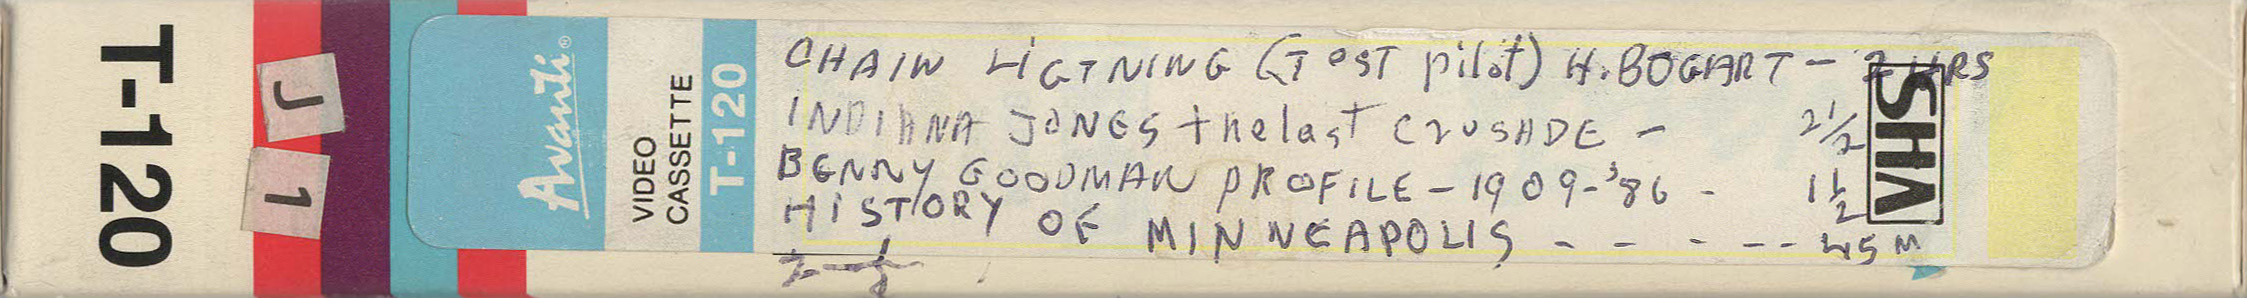 T-120
J
1
Avanti®
VIDEO
CASSETTE
T-120
CHAIN LIGTNING (TEST pilot) H. BOGART - 2 HRS
INDIANA JONES + the last CRUSADE - 2 1/2
BENNY GOODMAN PROFILE - 1909-'86 - 1 1/2
HISTORY OF MINNEAPOLIS - - - - - 45 M
VHS